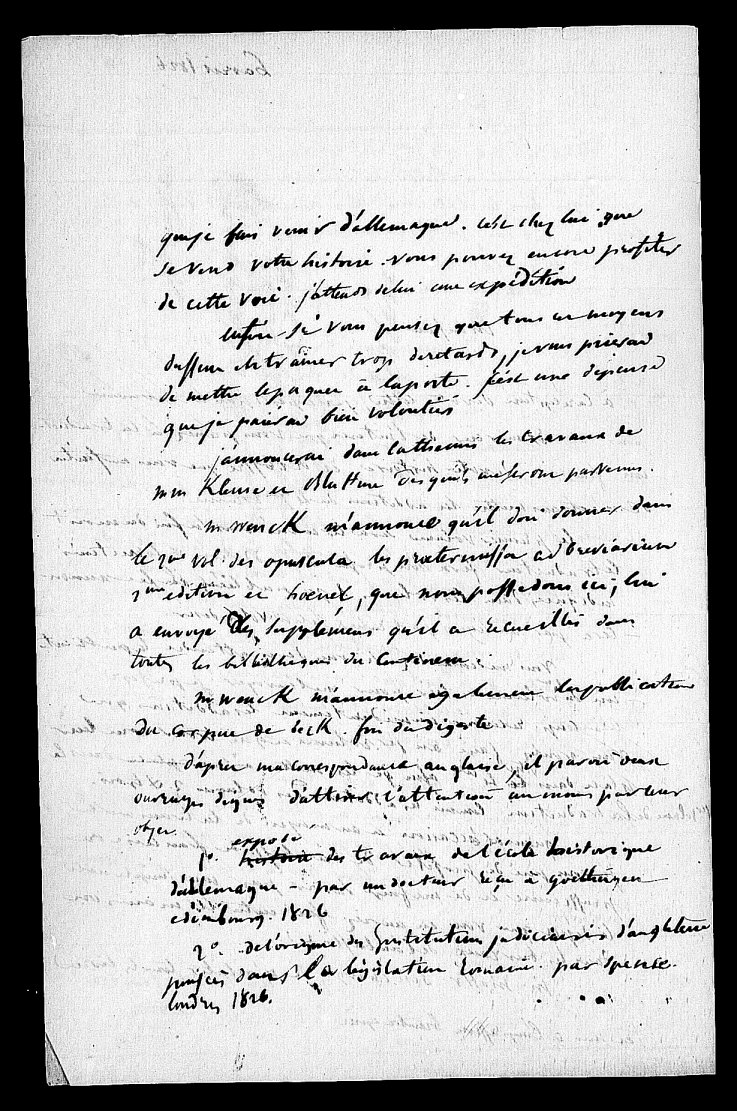 que je fais venir d'allemagne. c'est chez lui que
se vend votre histoire. vous pouvez encore profiter
de cette voie. j'attends de lui une expédition
enfin si vous pensez que tous ces moyens
dussent entrainer trop de retards, je vous prierai
de mettre le paquet à la poste. c'est une dépense
que je paierai bien volontiers
j'annoncerai dans la thémis les travaux de
mm Klenze et Bluhme des qu'ils me seront parvenus.
m Wenck m'annonce qu'il doit donner dans
le 2me vol. des opuscula les praetermissa ad breviarium
2me edition et hoenel, que nous possedons ici, lui
a envoyé des supplémens qu'il a recueillis dans
toutes les bibliothèques du Continent.
m Wenck m'annonce egalement la publication
du corpus de beck. fin du digeste
d'après ma correspondance anglaise, il parait deux
ouvrages dignes d'attirer l'attention au moins par leur
objet.
1º. histoire exposé des travaux de l'école historique
d'allemagne - par un docteur reçu à goettingen
edimbourg 1826
2º. de l'origine des Institutions judiciaires d'angleterre
puisées dans la législation romaine. par spence.
londres 1826.